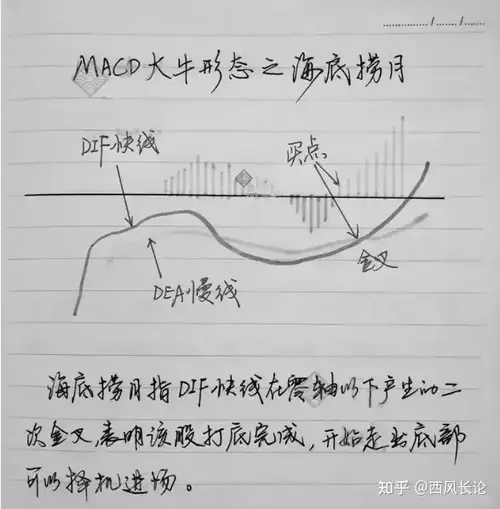 MACD大牛形态之海底捞月
DIF快线
买点
金叉
DEA慢线
海底捞月指DIF快线在零轴以下产生的二
次金叉,表明该股打底完成,开始走出底部
可以择机进场。
知乎 @西风长论